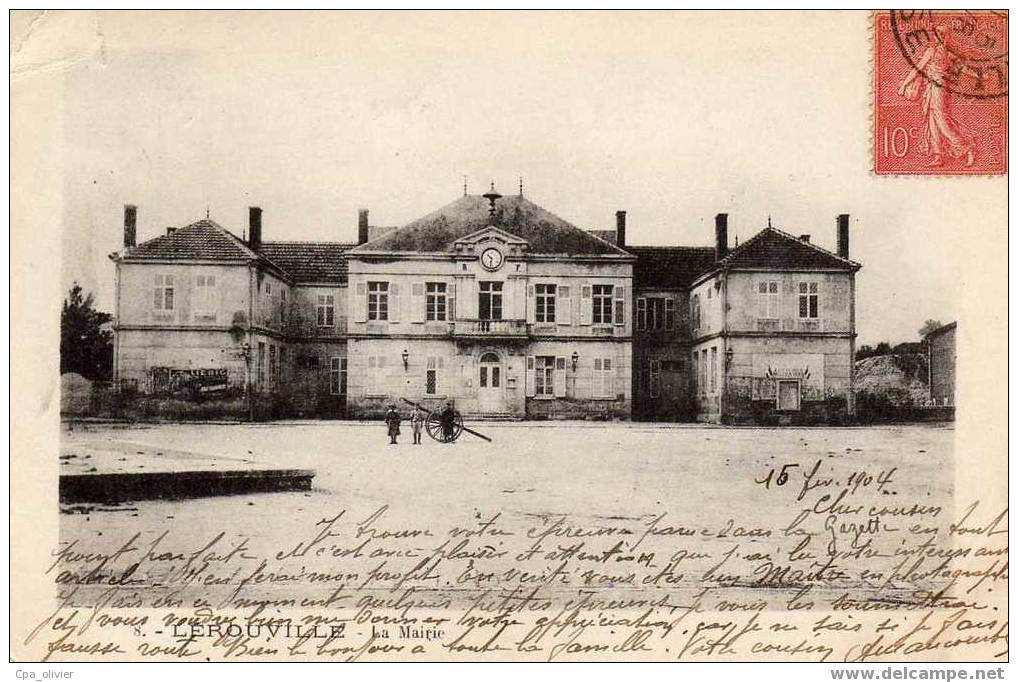 REPUBLIQUE FRANÇAISE
10c POSTES
15 fév. 1904
Cher cousin
Je trouve votre épreuve parue dans la Gazette en tout
point parfaite et c'est avec plaisir et attention que j'ai lu votre intéressant
article. J'en ferai mon profit. En vérité vous êtes un Maître en photographie
Je fais en ce moment quelques petites épreuves. Je vous les soumettrai.
et vous voudrez bien me donner votre appréciation, car je ne sais si je fais
fausse route. Bien le bonjour à toute la famille. Votre cousin
8. - LEROUVILLE - La Mairie
Cpa_olivier
www.delcampe.net